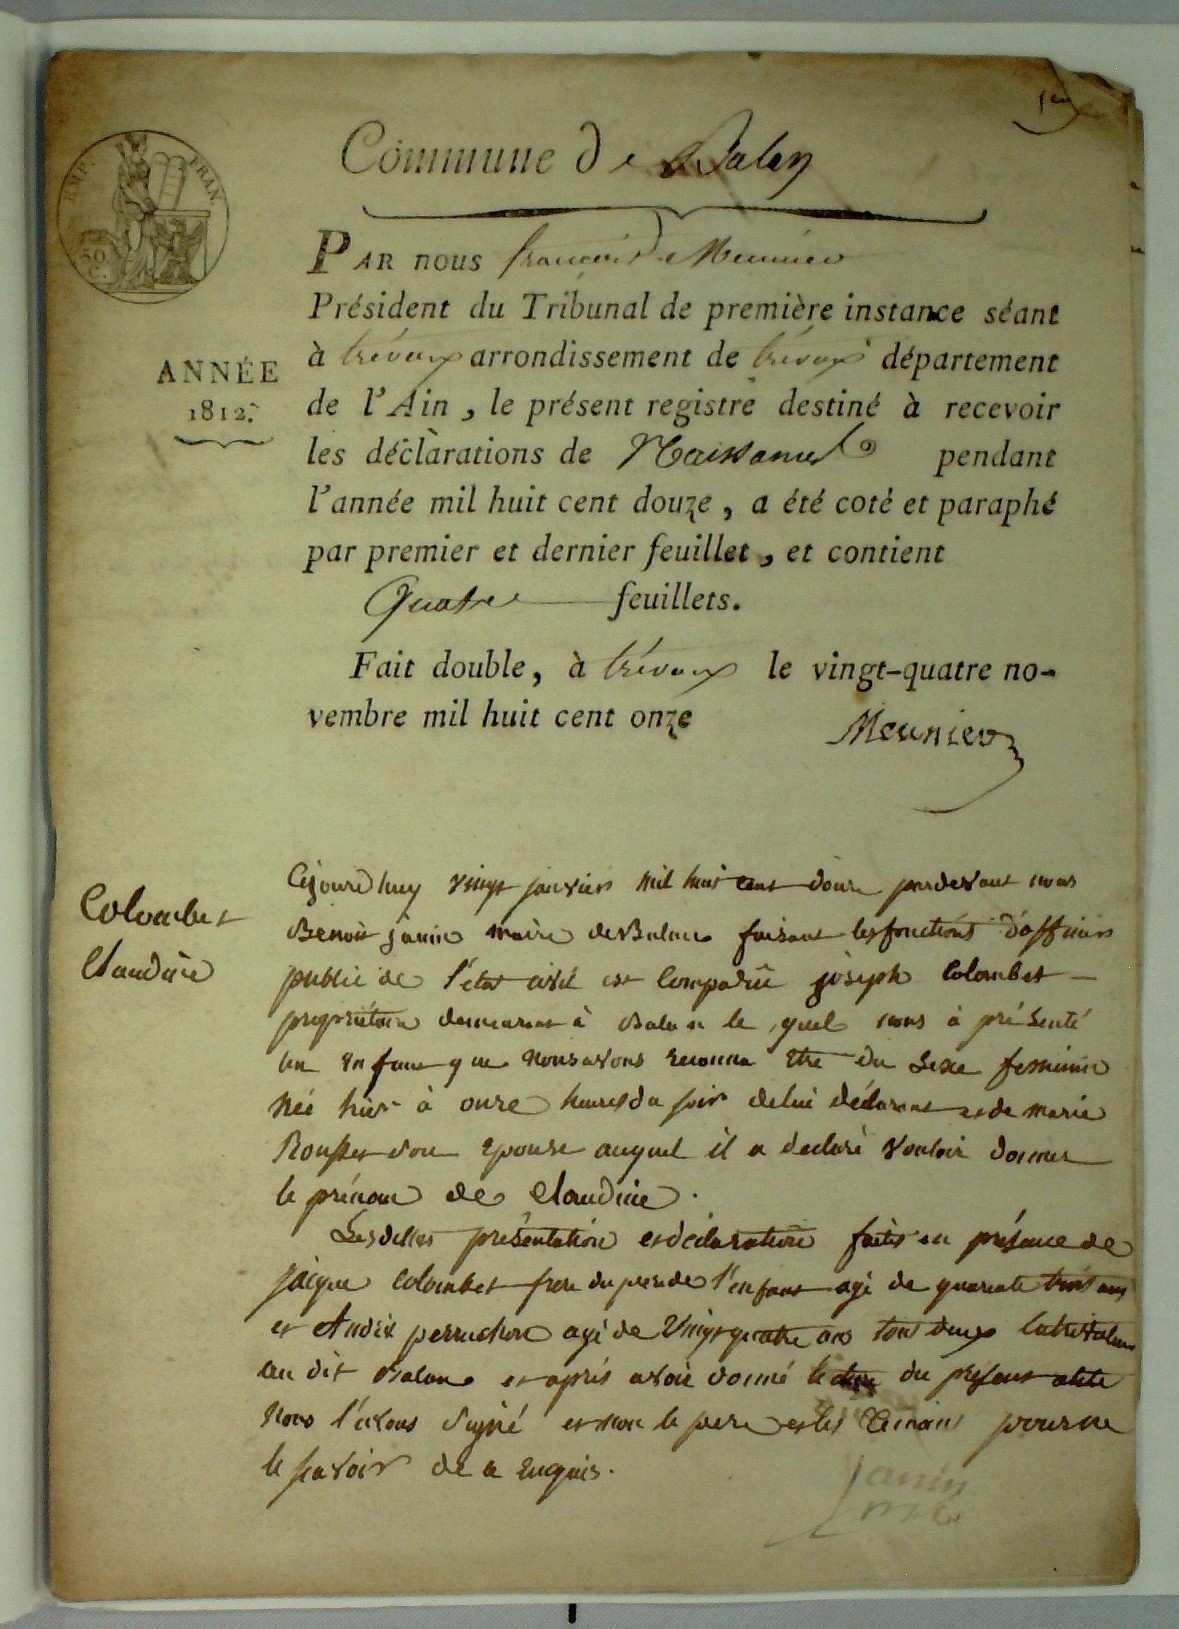 1er
Commune de Balan
EMP. FRAN
50
C.
PAR nous françois Meunier
Président du Tribunal de première instance séant
à trévoux arrondissement de trévoux département
ANNÉE
1812.
de l'Ain, le présent registre destiné à recevoir
les déclarations de Naissances pendant
l'année mil huit cent douze, a été coté et paraphé
par premier et dernier feuillet, et contient
Quatre feuillets.
Fait double, à trévoux le vingt-quatre no-
vembre mil huit cent onze
Meunier
Colombet
Claudine
Cejourdhuy vingt janvier mil huit cent douze pardevant nous
Benoit janin maire de Balan faisant les fonctions d'officier
public de l'état civil est Comparû joseph Colombet
propriétaire demeurant à Balan le quel nous à présenté
un enfant que nous avons reconnu etre du Sexe feminin
Née hier à onze heures du soir de lui déclarant et de marie
Rousset son epouse auquel il a declaré vouloir donner
le prénom de Claudine.
Lesdittes présentation et déclaration faites en présence de
jacque Colombet frere du pere de l'enfant agé de quarante trois ans
et André perruchon agé de vingt quatre ans tous deux Cultivateurs
au dit Balan et après avoir donné lecture du présent acte
Nous l'avons Signé et non le pere et les témoins pour ne
le savoir de ce enquis.
Janin